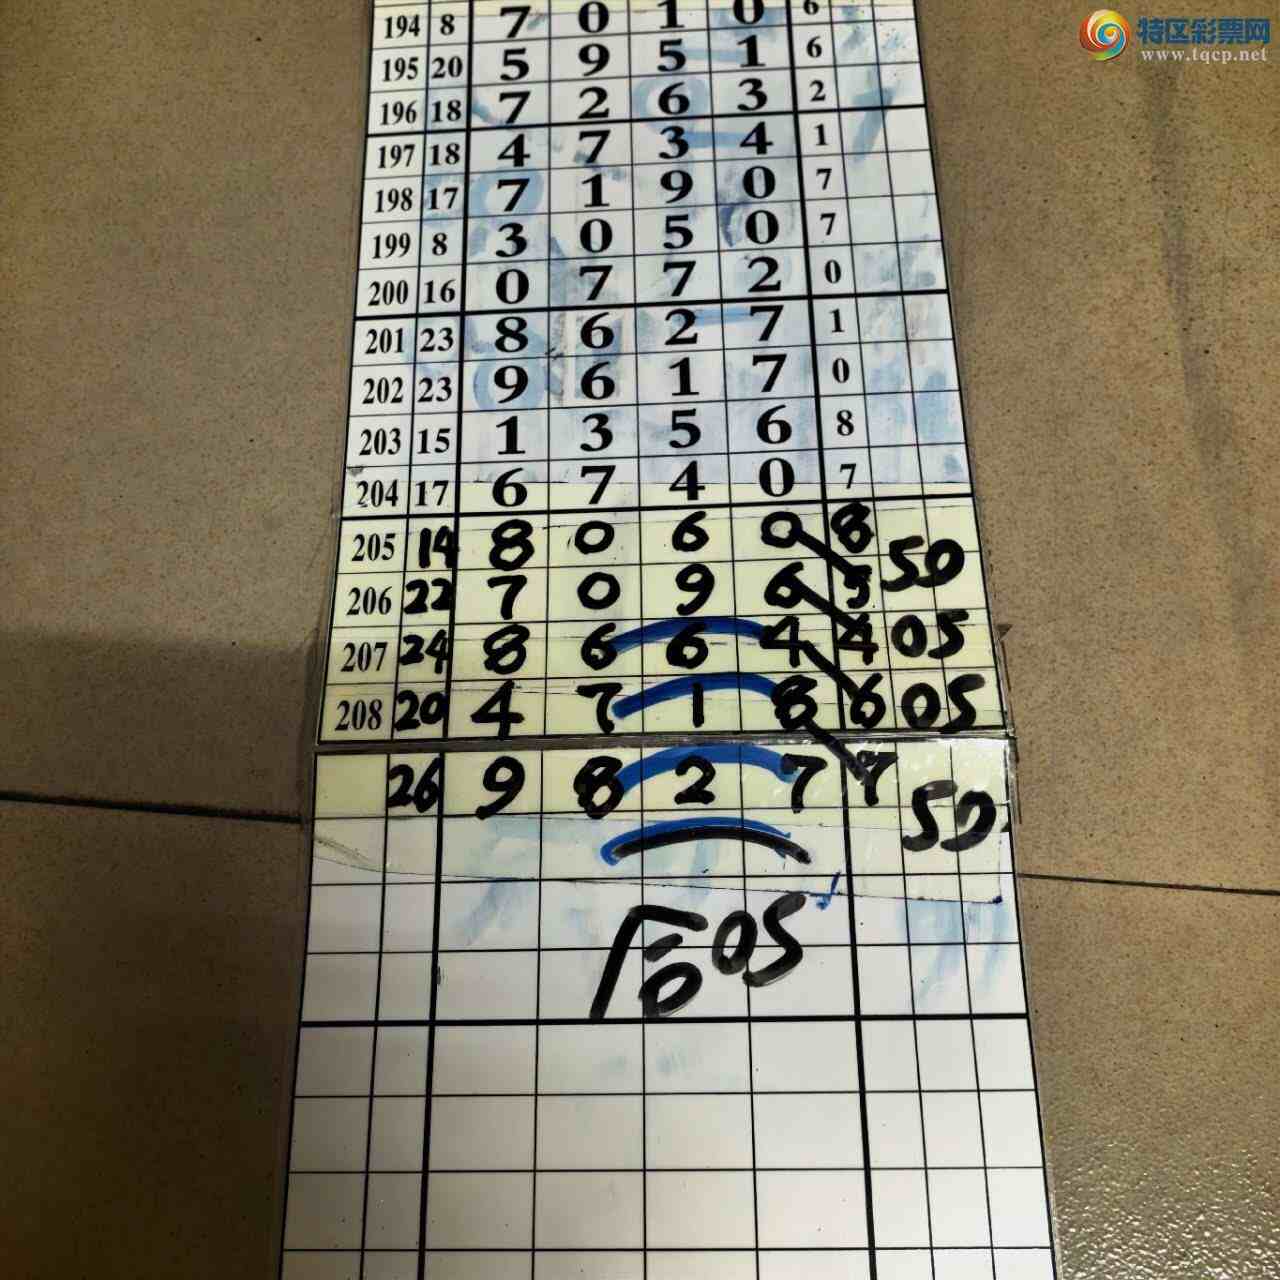 特区彩票网
www.tqcp.net
194 8 7 0 1 0 6
195 20 5 9 5 1 6
196 18 7 2 6 3 2
197 18 4 7 3 4 1
198 17 7 1 9 0 7
199 8 3 0 5 0 7
200 16 0 7 7 2 0
201 23 8 6 2 7 1
202 23 9 6 1 7 0
203 15 1 3 5 6 8
204 17 6 7 4 0 7
205 14 8 0 6 0 8
206 22 7 0 9 6 5 50
207 24 8 6 6 4 4 05
208 20 4 7 1 8 6 05
26 9 8 2 7 7 50
后05